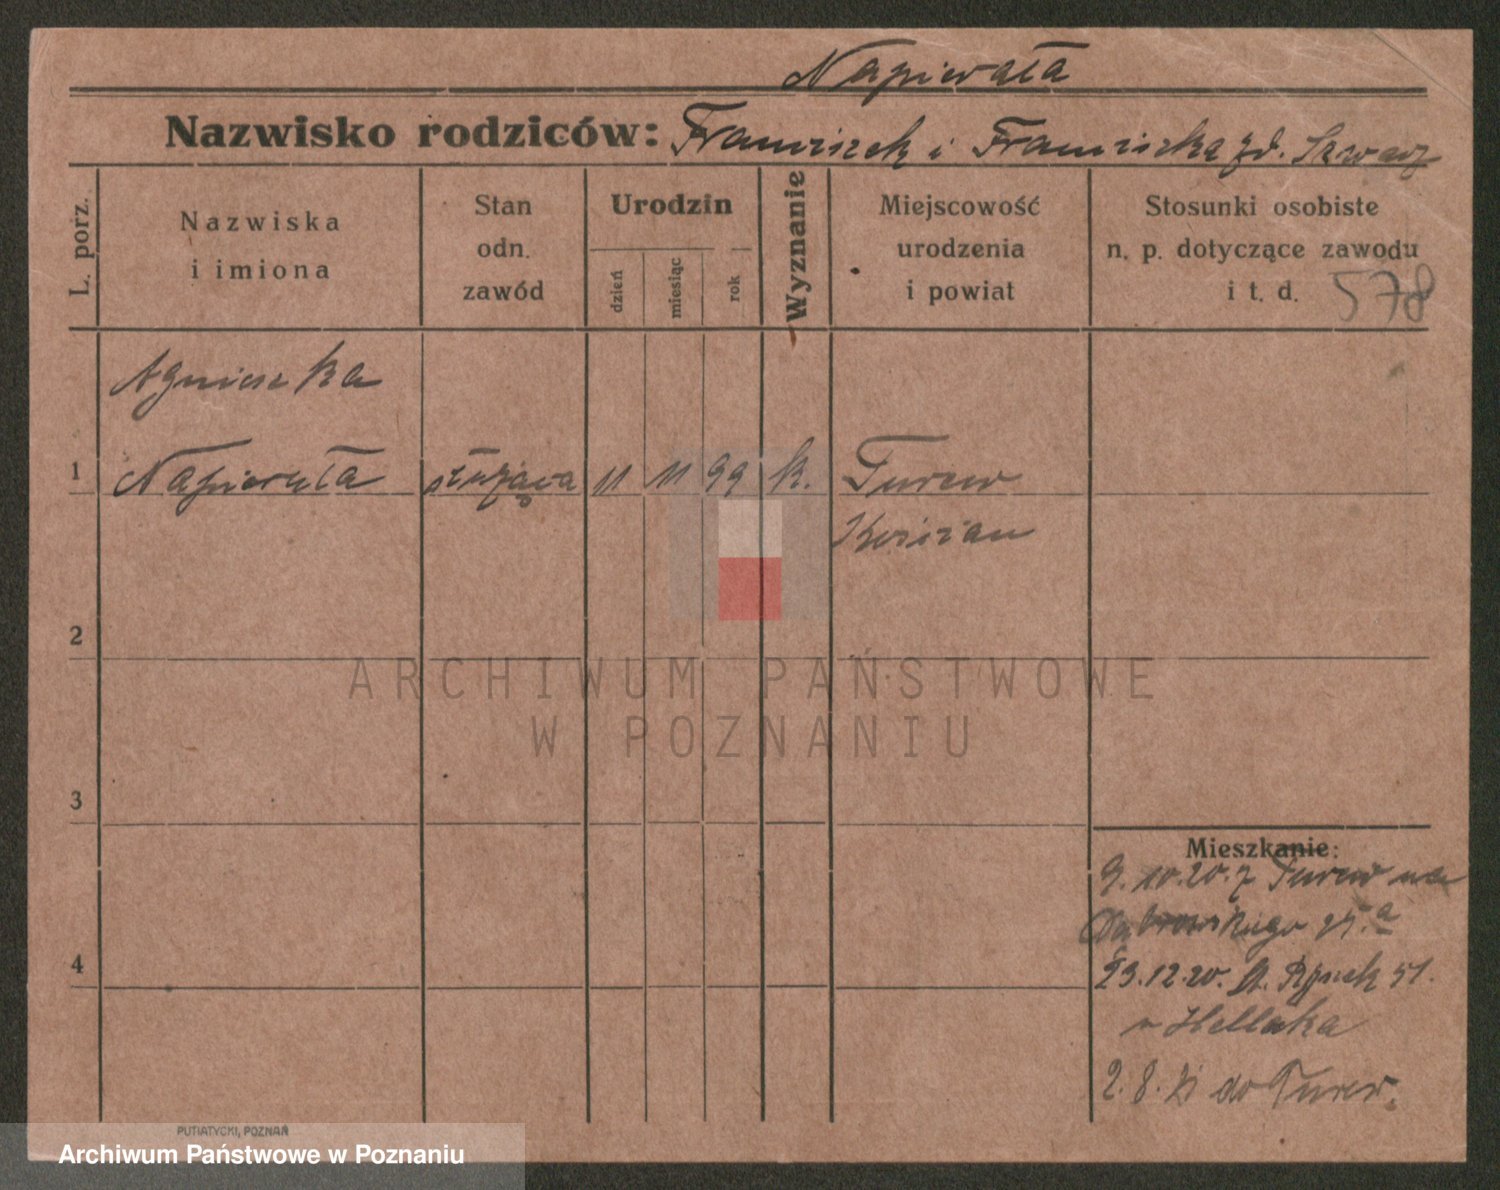 Napierała
Nazwisko rodziców: Franciszek i Franciszka zd.
L. porz.
Nazwiska
i imiona
Stan
odn.
zawód
Urodzin
dzień
miesiąc
rok
Wyznanie
Miejscowość
urodzenia
i powiat
Stosunki osobiste
n. p. dotyczące zawodu
i t. d.
578
Agnieszka
1 Napierała służąca 11 11 99 k. Turew
Kościan
2
ARCHIWUM PAŃSTWOWE
W POZNANIU
3
Mieszkanie:
9.10.20. z Turew na
Dąbrowskiego
4
23.12.20. St. Rynek 51.
u Hellaka
2.8. do Turew.
PUTIATYCKI, POZNAŃ
Archiwum Państwowe w Poznaniu